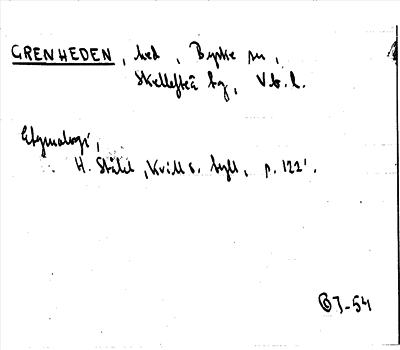 GRENHEDEN, hed, Byske sn,
Skellefteå tg, V.b.l.
Etymologi,
H. Ståhl, Kvill o. tyll, p. 122.
OJ-54